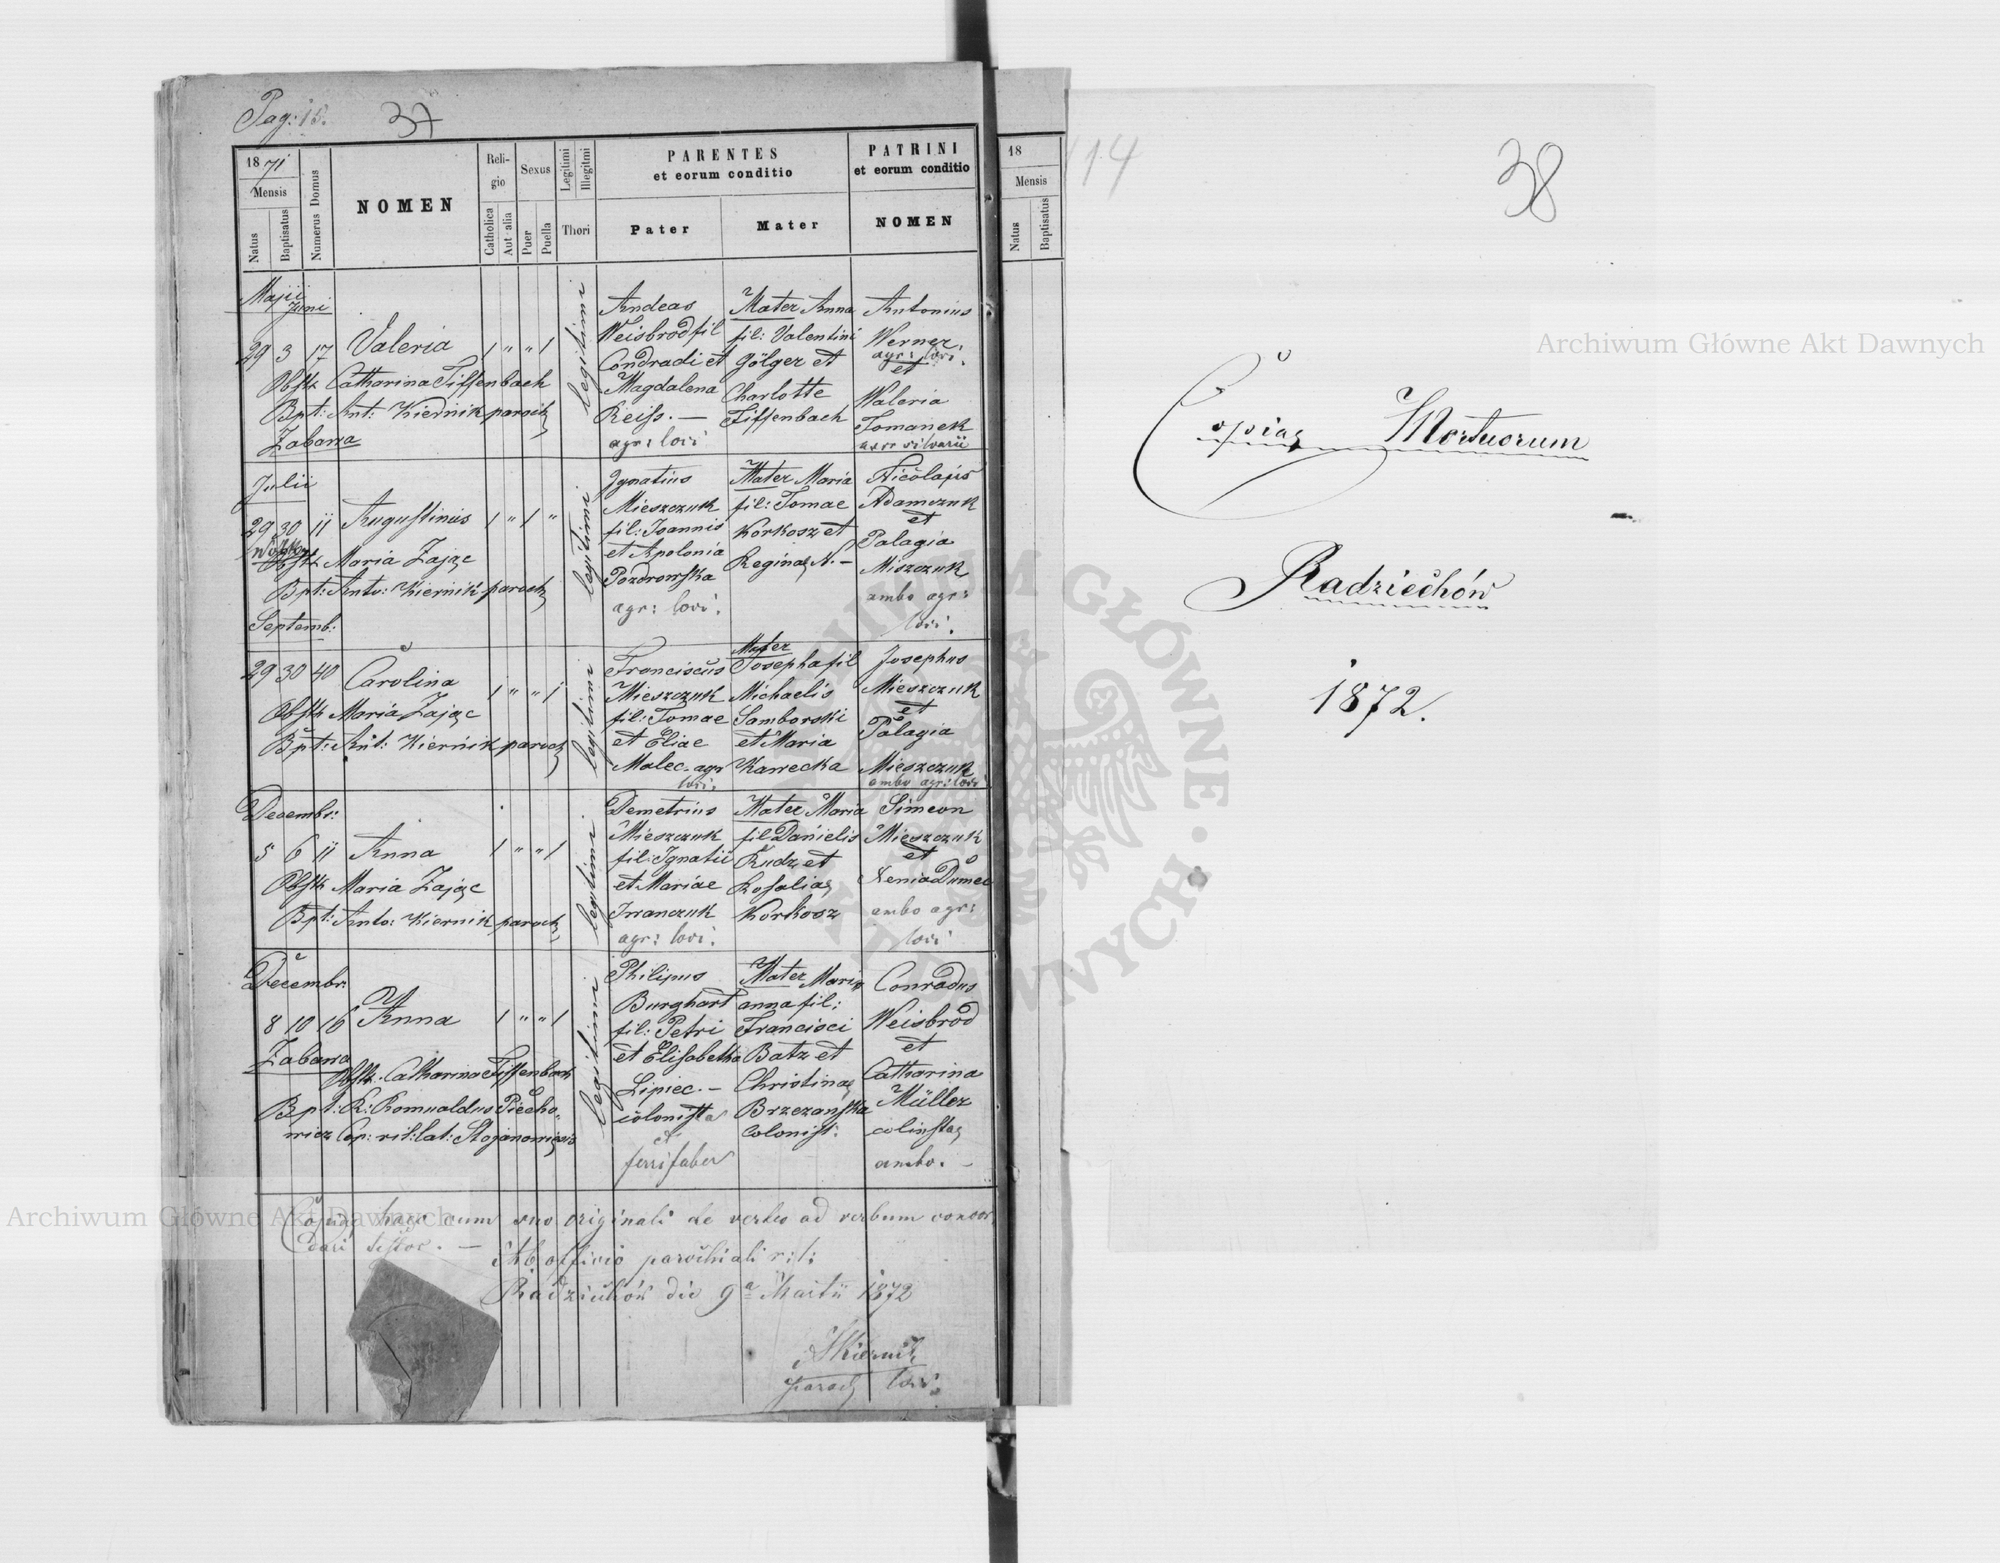 Pag: 15.
37
1871
Mensis
Natus
Baptisatus
Numerus Domus
NOMEN
Reli-
gio
Catholica
Aut alia
Sexus
Puer
Puella
Legitimi
Illegitimi
Thori
PARENTES
et eorum conditio
Pater
Mater
PATRINI
et eorum conditio
NOMEN
Majii
Juni
29 3 17 Valeria 1 " " 1
Obst: Catharina Tiffenbach
Bpt: Ant: Kiernik paroch
Zabawa
legitimi
Andeas
Weisbrod fil
Condradi et
Magdalena
Reiss. —
agr: loci
Mater Anna
fil: Valentini
Gölger et
Charlotte
Tiffenbach
Antonius
Werner.
agr: loci.
et
Waleria
Tomanek
Julii
29 30 11 Augustinus 1 " 1 "
Obst: Maria Zając
Bpt: Anto: Kiernik paroch
legitimi
Ignatius
Mieszczuk
fil: Joannis
et Apolonia
Pozdrowska
agr: loci.
Mater Maria
fil: Tomae
Korkosz et
Reginae N. —
Nicolajis
Adamczuk
et
Palagia
Miszczuk
ambo agr:
loci.
Septemb:
29 30 40 Carolina 1 " " 1
Obst: Maria Zając
Bpt: Ant: Kiernik paroch
legitimi
Franciscus
Mieszczuk
fil: Tomae
et Eliae
Malec. agr
loci.
Mater
Josepha fil
Michaelis
Samborski
et Maria
Kawecka
Josephus
Mieszczuk
et
Palagia
Mieszczuk
ambo agr: loci
Decembr:
5 6 11 Anna 1 " " 1
Obst: Maria Zając
Bpt: Anto: Kiernik paroch
legitimi
Demetrius
Mieszczuk
fil: Ignatii
et Mariae
Iwanczuk
agr: loci.
Mater Maria
fil Danielis
Kudz et
Rosaliae
Korkosz
Simeon
Mieszczuk
et
Xenia Dumec
ambo agr:
loci
Decembr:
8 10 16 Anna 1 " " 1
Zabawa
Obst: Catharina Tiffenbach
Bpt: R: Romualdus Piecho-
wicz Cop: rit: lat: Stojanowiensis
legitimi
Philipus
Burghart
fil: Petri
et Elisabetha
Lipiec. —
colonista
et
ferrifaber
Mater Mari
anna fil:
Francisci
Batz et
Christinae
Brzezanska
colonist:
Conradus
Weisbrod
et
Catharina
Müller
colinstae
ambo. —
Copiae haec cum suo originali de verbo ad verbum concor
dari testor. —
Ab officio parochiali r: l:
Radziechów die 9a Martii 1872
AKiernik
paroch loci.
18
Mensis
Natus
Baptisatus
114
38
Copiae Mortuorum
Radziechów
1872.
Archiwum Główne Akt Dawnych
Archiwum Główne Akt Dawnych
ARCHIWUM GŁÓWNE AKT DAWNYCH